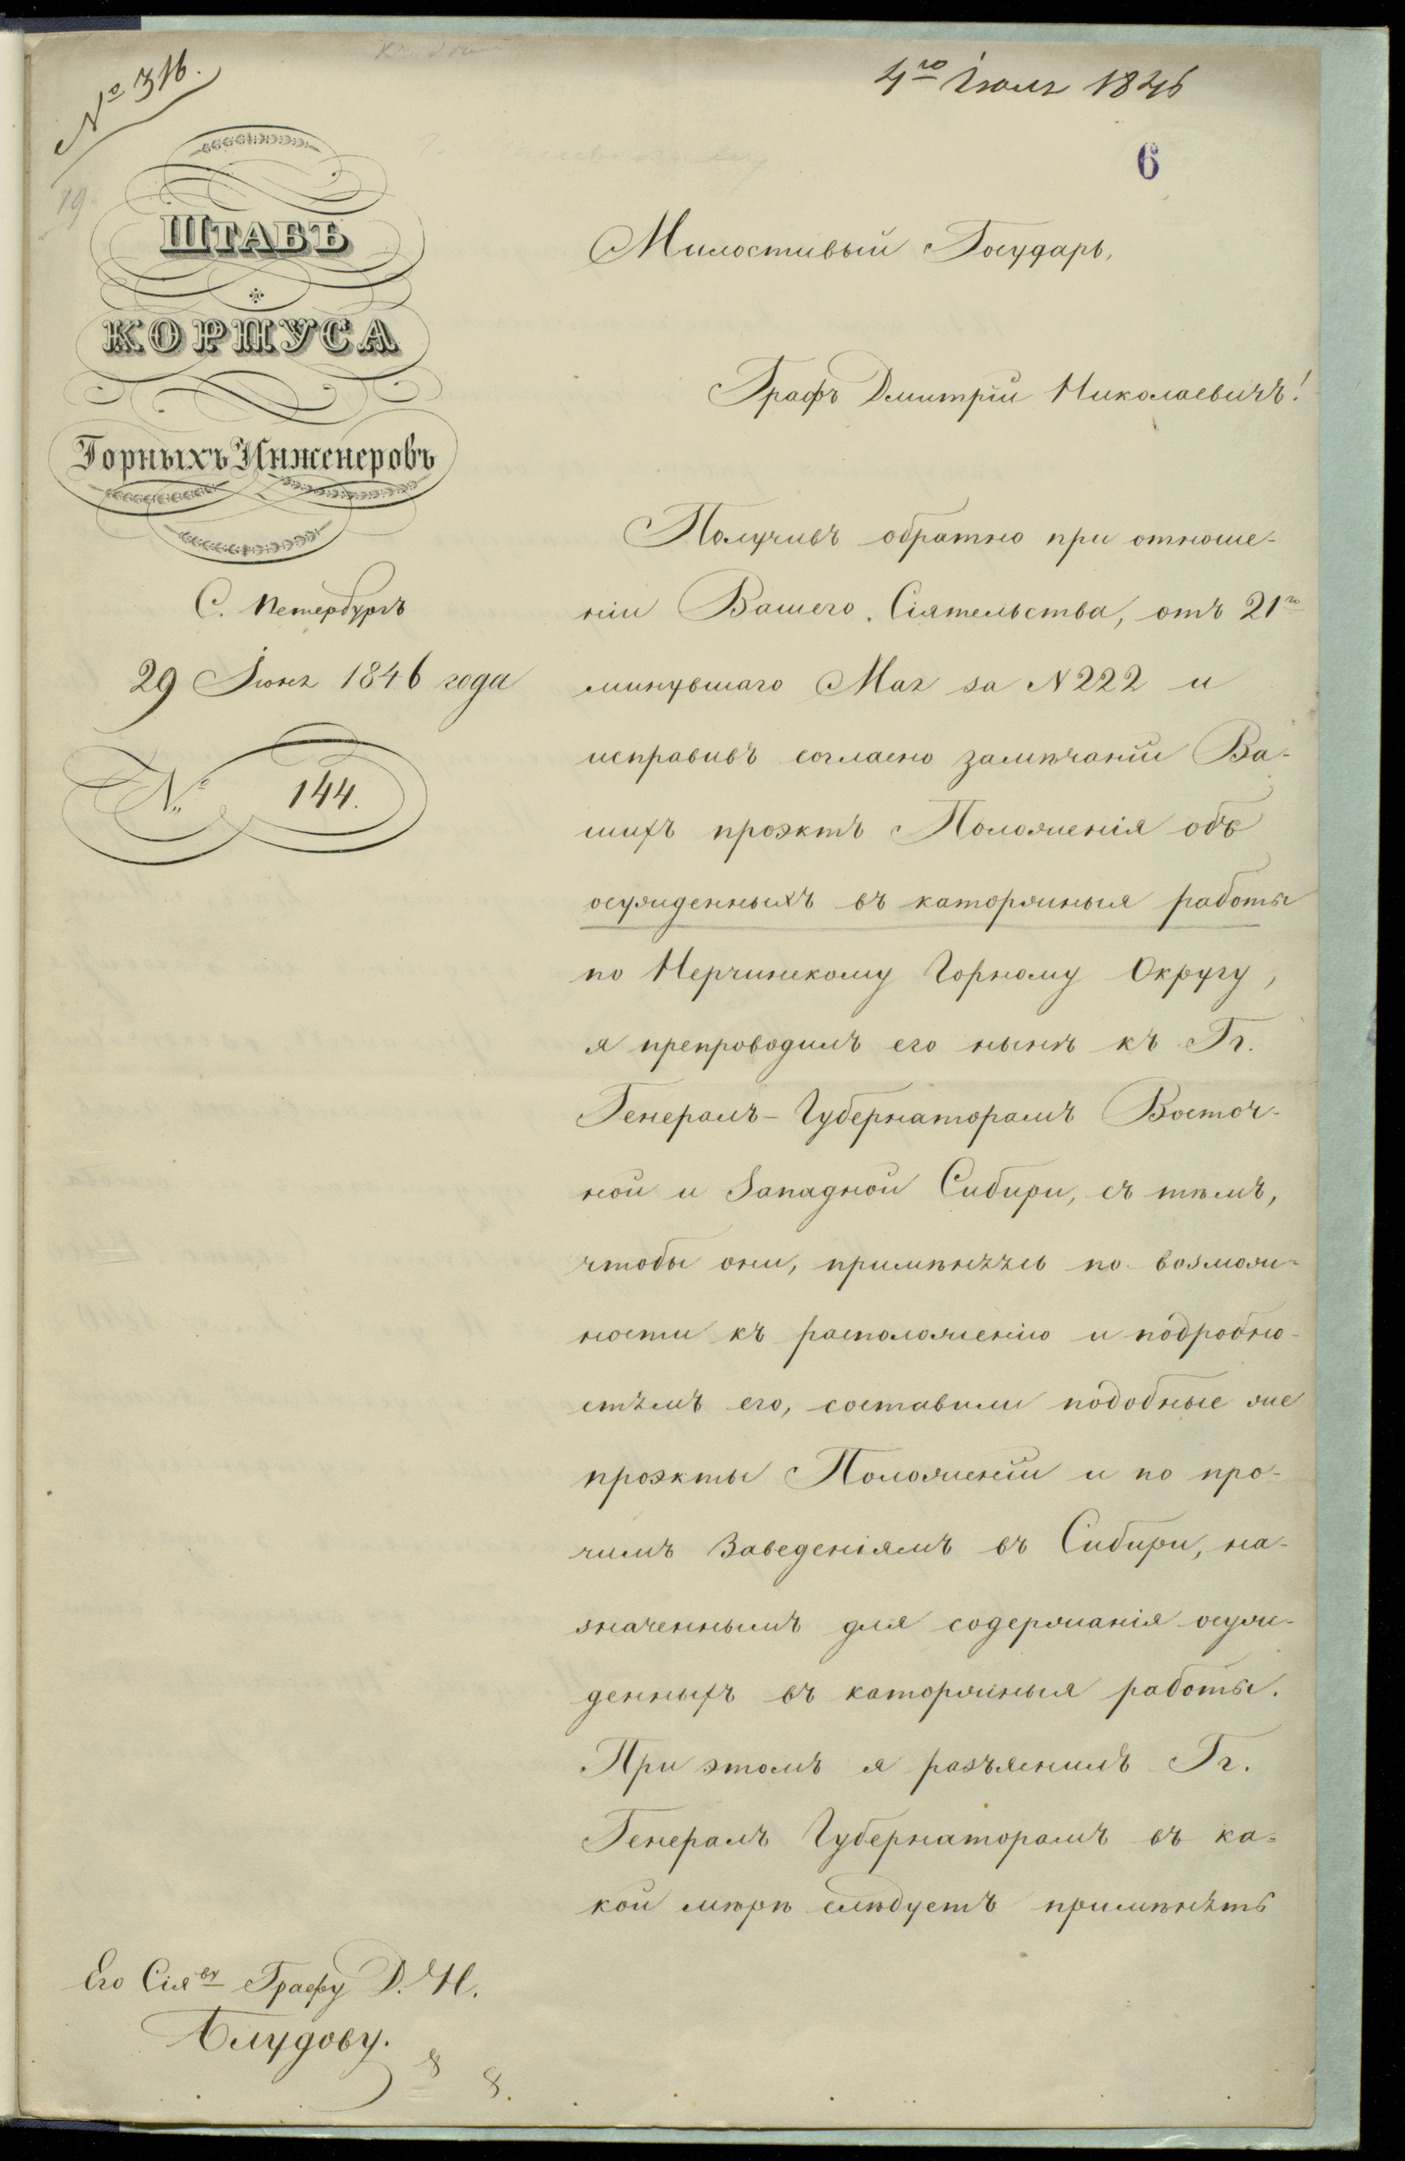 № 316.
4го Іюля 1846
6
19
ШТАБЪ
КОРПУСА
Горныхъ Инженеровъ
С. Петербургъ
29 Іюня 1846 года
№ 144.
Милостивый Государь,
Графъ Дмитрій Николаевичъ!
Получивъ обратно при отноше-
ніи Вашего Сіятельства, отъ 21го
минувшаго Мая за N 222 и
исправивъ согласно замѣчаній Ва-
шихъ проэктъ Положенія объ
осужденныхъ въ каторжныя работы
по Нерчинскому Горному Округу,
я препроводилъ его нынѣ къ Гг.
Генералъ-Губернаторамъ Восточ-
ной и Западной Сибири, съ тѣмъ,
чтобы они, примѣняясь по возмож-
ности къ расположенію и подробно-
стямъ его, составили подобные же
проэкты Положеній и по про-
чимъ Заведеніямъ въ Сибири, на-
значеннымъ для содержанія осуж-
денныхъ въ каторжныя работы.
При этомъ я разъяснилъ Гг.
Генералъ Губернаторамъ въ ка-
кой мѣрѣ слѣдуетъ примѣнять
Его Сіяву Графу Д. Н.
Блудову.
8 8.